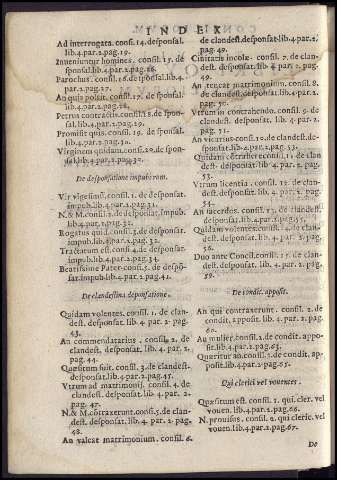 INDEX
Ad interrogata. consi. 14. desponsal.
lib.4.par.2.pag.19.
Inueniuntur homines. consil. 15. de
sponsal.lib.4.par.2.pag.26.
Parochus. consil. 16. de sponsal. lib.4.
par.2.pag.27.
An quis possit. consil. 17. de sponsal.
lib.4.par.2.pag.28.
Petrus contractis. consil.18. de spon-
sal. lib.4.par.2.pag.29.
Promisit quis. consil. 19. de sponsal.
lib.4.par.2.pag.30.
Virginem quidam. consi.20. de spon-
sal.lib.4.par.2.pag.30.
De desponsatione impuberum.
Vir vigessimi. consil. 1. de desponsat.
impub.lib.4.par.2.pag.31.
N. & M. consil.2. de desponsat. impub.
lib.4.par.2.pag.32.
Rogatus quid. consil.3. de desponsat.
impub.lib.4.par.2.pag.32.
Tractatum est. consil.4. de desponsat.
impub.lib.4.par.2.pag.34.
Beatissime Pater. cons.5. de despō-
sat.impub.lib.4.par.2.pag.41.
De clandestina desponsatione.
Quidam volentes. consil. 1. de clan-
dest. desponsat. lib. 4. par. 2. pag.
43.
An commendatarius. consil. 2. de
clandest. desponsat. lib. 4. par. 2.
pag. 44.
Quæsitum fuit. consil. 3. de clandest.
desponsat.lib.4.par.2.pag.45.
Vtrum ad matrimonij. consil. 4. de
clandest. desponsat. lib. 4. par. 2.
pag. 47.
N. & M. cōtraxerunt. consil. 5. de clan-
dest. desponsat. lib. 4. par. 2. pag.
48.
An valeat matrimonium. consil. 6.
de clandest.desponsat.lib.4.par.2.
pag. 49.
Ciuitatis incolæ. consil. 7. de clan-
dest. desponsat. lib. 4. par. 2. pag.
49.
An teneat matrimonium. consil. 8.
de clandest. desponsat. lib.4.par.2.
pag. 50.
Vtrum in contrahendo. consil. 9. de
clandest. desponsat. lib. 4. par. 2.
pag. 51.
An vicarius. consil.10. de clandest. de-
sponsat.lib.4.par.2.pag. 53.
Quidam cōtrahere consil. 11. de clan
dest. desponsat. lib. 4. par. 2. pag.
53.
Vtrum licentia. consil. 12. de clan-
dest. desponsat. lib. 4. par. 2. pag.
54.
An sacerdos. consil. 13. de clandest.
desponsat.lib.4.par.2.pag. 55.
Quidam volentes. consil. 14. de clan-
dest. desponsat. lib. 4. par. 2. pag.
56.
Duo ante Concil. consil. 15. de clan-
dest. desponsat. lib. 4. par. 2. pag.
59.
De condit. apposit.
An qui contraxerunt. consil. 1. de
condit. apposit. lib. 4. par. 2. pag.
60.
An mulier. consil.2. de condit. appo-
sit.lib.4.par.2.pag.63.
Quæritur an. consil.3. de condit. app-
posit.lib.4.par.2.pag.63.
Qui clerici vel vouentes.
Quæsitum est. consil. 1. qui cler. vel
vouen.lib.4.par.2.pag.66.
N. prouisus. consil. 2. qui cleric. vel
vouen.lib.4.par.2.pag.67.
De